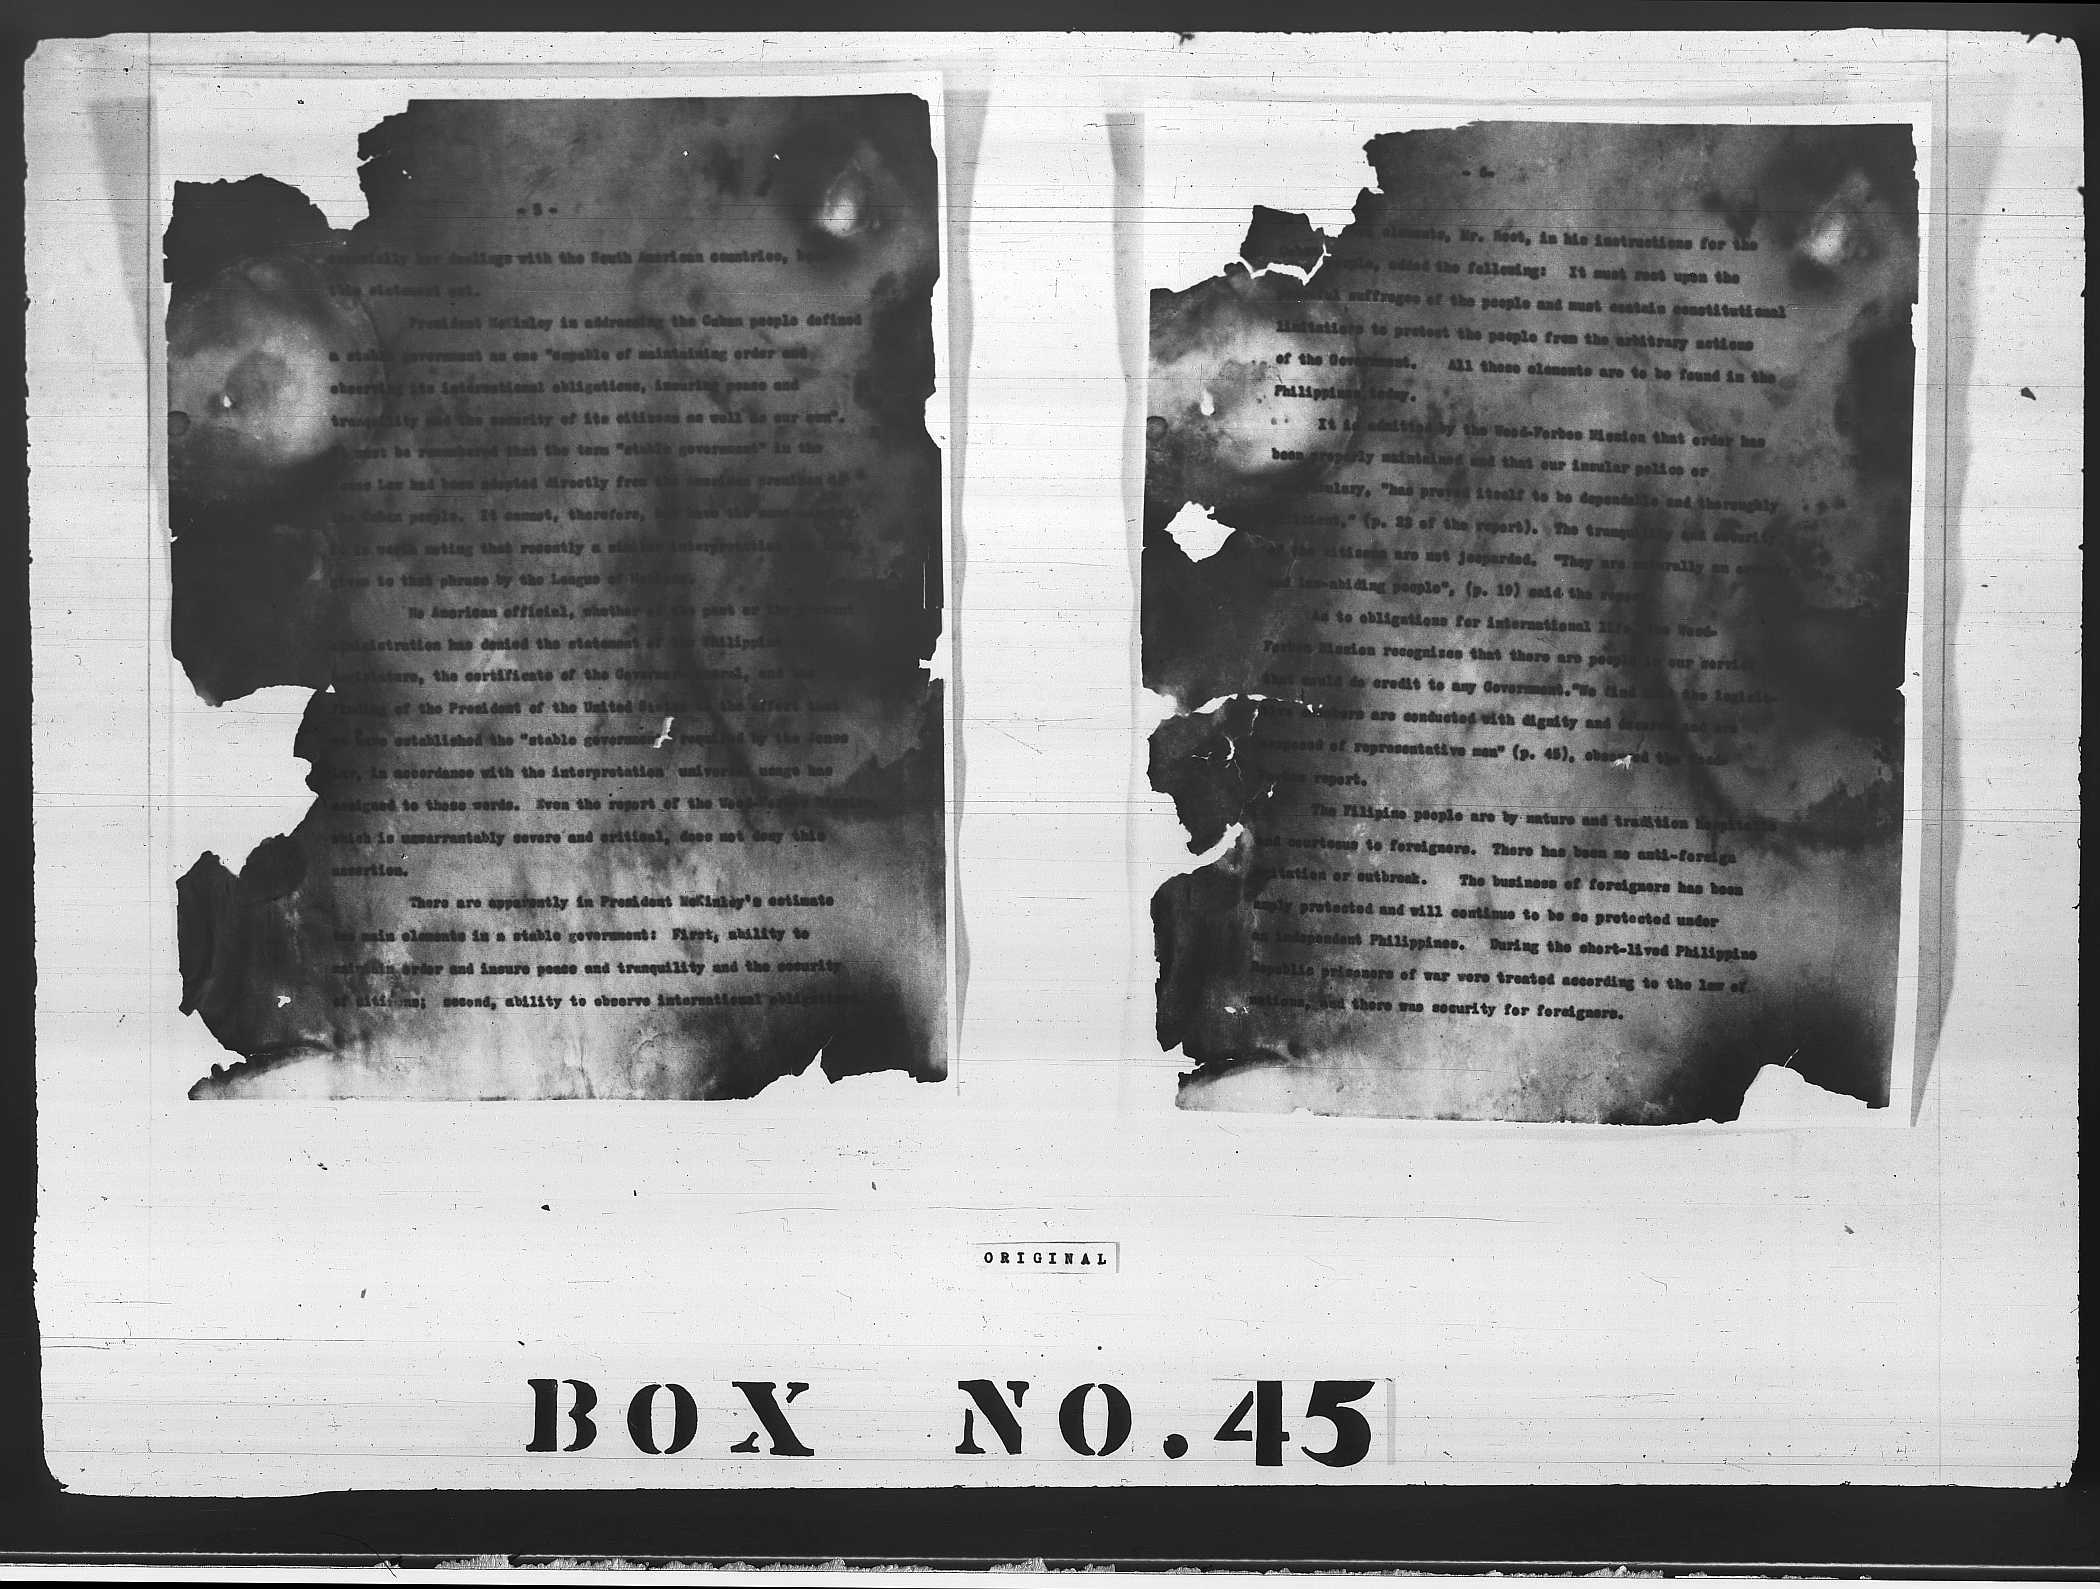 - 5 -
especially her dealings with the South American countries,
this statement out.
President McKinley in addressing the Cuban people defined
a stable government as one "capable of maintaining order and
observing its international obligations, insuring peace and
tranquility and the security of its citizens as well as our own".
must be remembered that the term "stable government" in the
Jones Law had been adopted directly from the American promises
Cuban people. It cannot, therefore, but have the same
is worth noting that recently a similar interpretation
given to that phrase by the League of Nations.
No American official, whether of the past or the present
administration has denied the statement of the Philippine
Legislature, the certificate of the Governor-General, and the
finding of the President of the United States to the effect that
we have established the "stable government" required by the Jones
Law, in accordance with the interpretation universal usage has
assigned to these words. Even the report of the Wood-Forbes Mission
which is unwarrantably severe and critical, does not deny this
assertion.
There are apparently in President McKinley's estimate
two main elements in a stable government: First, ability to
maintain order and insure peace and tranquility and the security
of citizens; second, ability to observe international
- 6-
elements, Mr. Root, in his instructions for the
Cuban people, added the following: It must rest upon the
peaceful suffrages of the people and must contain constitutional
limitations to protect the people from the arbitrary actions
of the Government. All these elements are to be found in the
Philippines today.
It is admitted by the Wood-Forbes Mission that order has
been properly maintained and that our insular police or
"has proved itself to be dependable and thoroughly
(p. 23 of the report). The tranquility and security
of the citizens are not jeoparded. "They are naturally an
and law-abiding people", (p. 19) said the
As to obligations for international life, the Wood-
Forbes Mission recognizes that there are people in our service
that would do credit to any Government."We find that the legisla-
tive chambers are conducted with dignity and decorum and are
composed of representative men" (p. 45), observed the Wood-
Forbes report.
The Filipino people are by nature and tradition hospitable
and courteous to foreigners. There has been no anti-foreign
agitation or outbreak. The business of foreigners has been
amply protected and will continue to be so protected under
an independent Philippines. During the short-lived Philippine
Republic prisoners of war were treated according to the law of
nations, and there was security for foreigners.
ORIGINAL
BOX NO.45